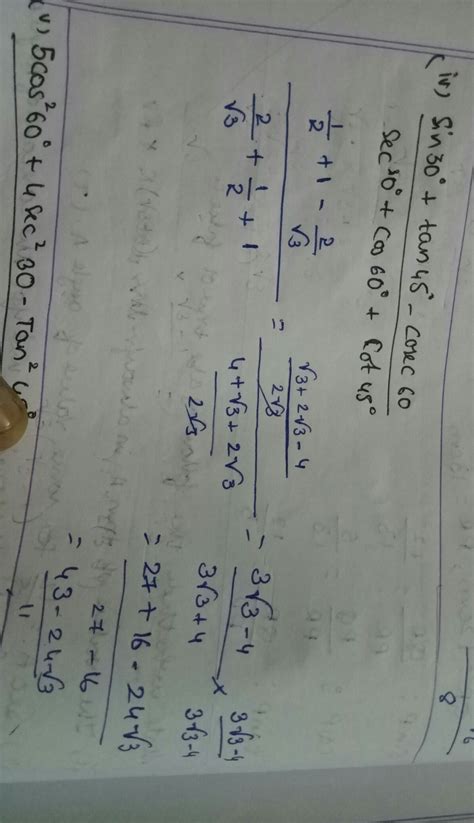 (iv) sin30° + tan45° - cosec 60
sec30° + cos60° + cot45°
1/2 + 1 - 2/√3
2/√3 + 1/2 + 1
= √3 + 2√3 - 4
2√3
4 + √3 + 2√3
2√3
= 3√3 - 4
3√3 + 4
× 3√3 - 4
3√3 - 4
= 27 + 16 - 24√3
27 - 16
= 43 - 24√3
11
(v) 5cos²60° + 4sec²30 - Tan²
8